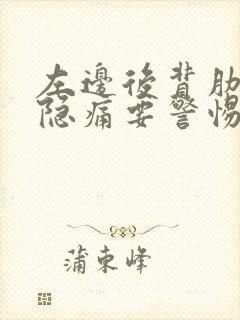 左邊後背肋
隐痛要警惕
蒲東峰